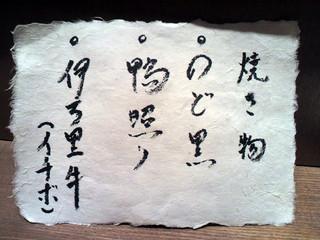 焼き物
・のど黒
・鴨照り
・伊万里牛
（イチボ）